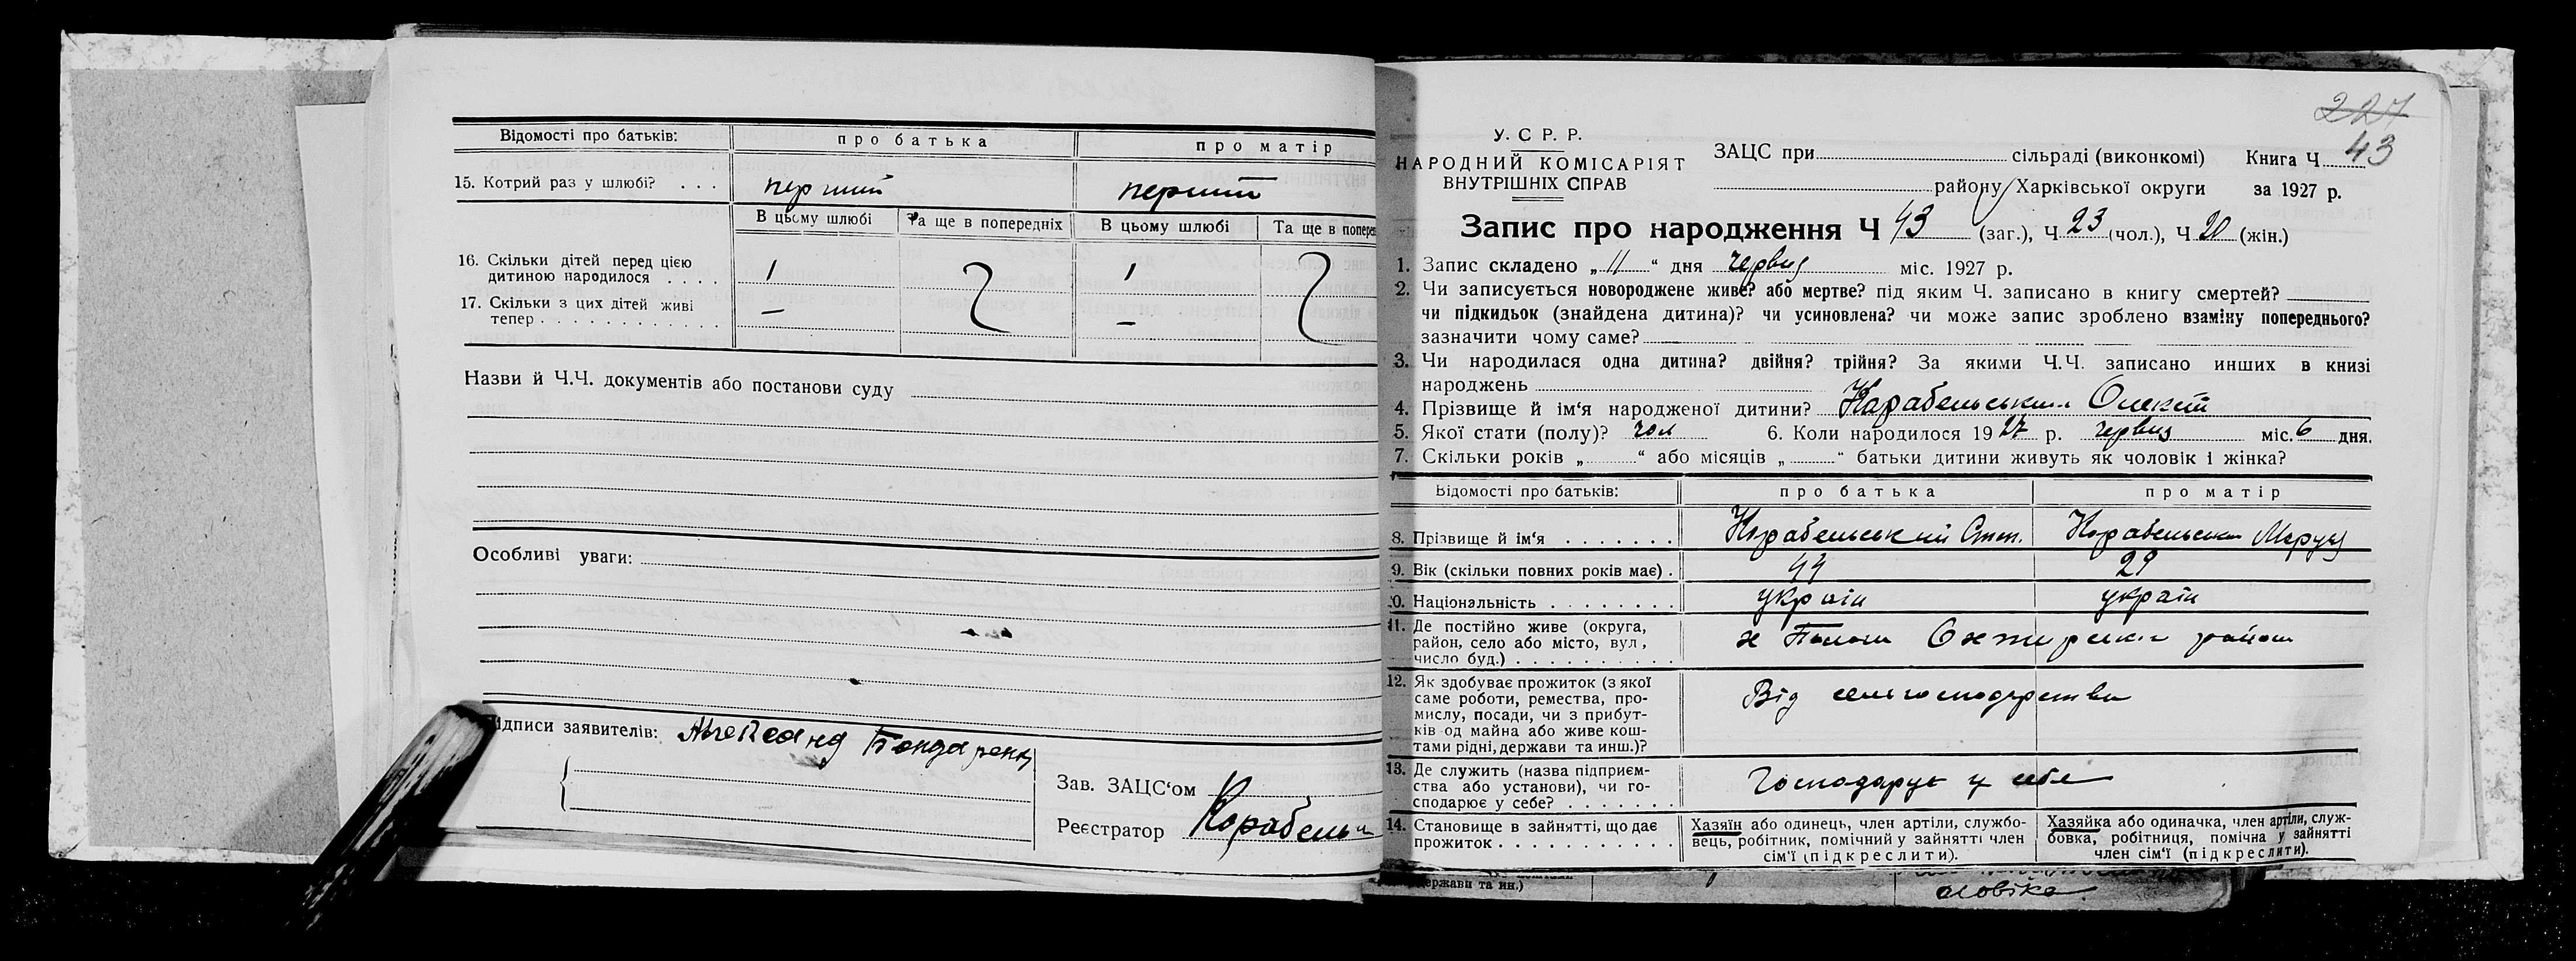 Відомості про батьків:
про батька
про матір
15. Котрий раз у шлюбі? . . .
перший
перший
В цьому шлюбі
Та ще в попередніх
В цьому шлюбі
Та ще в попере
16. Скільки дітей перед цією
дитиною народилося . . . .
1
1
17. Скільки з цих дітей живі
тепер . . . . . . . . . . . .
–
–
Назви й Ч.Ч. документів або постанови суду
Особливі уваги:
ідписи заявителів:
Бондаренк
Зав. ЗАЦС‘ом
Реєстратор Корабельн
227
У. С Р. Р.
НАРОДНИЙ КОМІСАРІЯТ
ВНУТРІШНІХ СПРАВ
ЗАЦС при сільраді (виконкомі) Книга Ч 43
району Харківської округи за 1927 р.
Запис про народження Ч 43 (заг.), Ч 23 (чол.), Ч 20 (жін.)
1. Запис складено „11“ дня червня міс. 1927 р.
2. Чи записується новороджене живе? або мертве? під яким Ч. записано в книгу смертей?
чи підкидьок (знайдена дитина)? чи усиновлена? чи може запис зроблено взаміну попереднього?
зазначити чому саме?
3. Чи народилася одна дитина? двійня? трійня? За якими Ч.Ч. записано инших в книзі
народжень
4. Прізвище й ім‘я народженої дитини? Карабельський Олексій
5. Якої стати (полу)? чол 6. Коли народилося 1927 р. червня міс. 6 дня.
7. Скільки років „ “ або місяців „ “ батьки дитини живуть як чоловік і жінка?
Відомості про батьків:
про батька
про матір
8. Прізвище й ім‘я . . . . . . .
Корабельський Степ.
Корабельська
9. Вік (скільки повних років має) .
44
29
0. Національність . . . . . . . .
україн
україн
11. Де постійно живе (округа,
район, село або місто, вул.,
число буд.) . . . . . . . . . .
х Охтирськ район
12. Як здобуває прожиток (з якої
саме роботи, ремества, про-
мислу, посади, чи з прибут-
ків од майна або живе кош-
тами рідні, держави та инш.)?
Від сельгосподарства
13. Де служить (назва підприєм-
ства або установи), чи го-
сподарює у себе? . . . . . . .
Господарує у себе
14. Становище в зайнятті, що дає
прожиток . . . . . . . . . . .
Хазяїн або одинець, член артіли, службо-
вець, робітник, помічний у зайнятті член
сім‘ї (підкреслити).
Хазяйка або одиначка, член артіли, служ-
бовка, робітниця, помічна у зайнятті
член сім‘ї (підкреслити).
ержави та ин.)
оловіка.